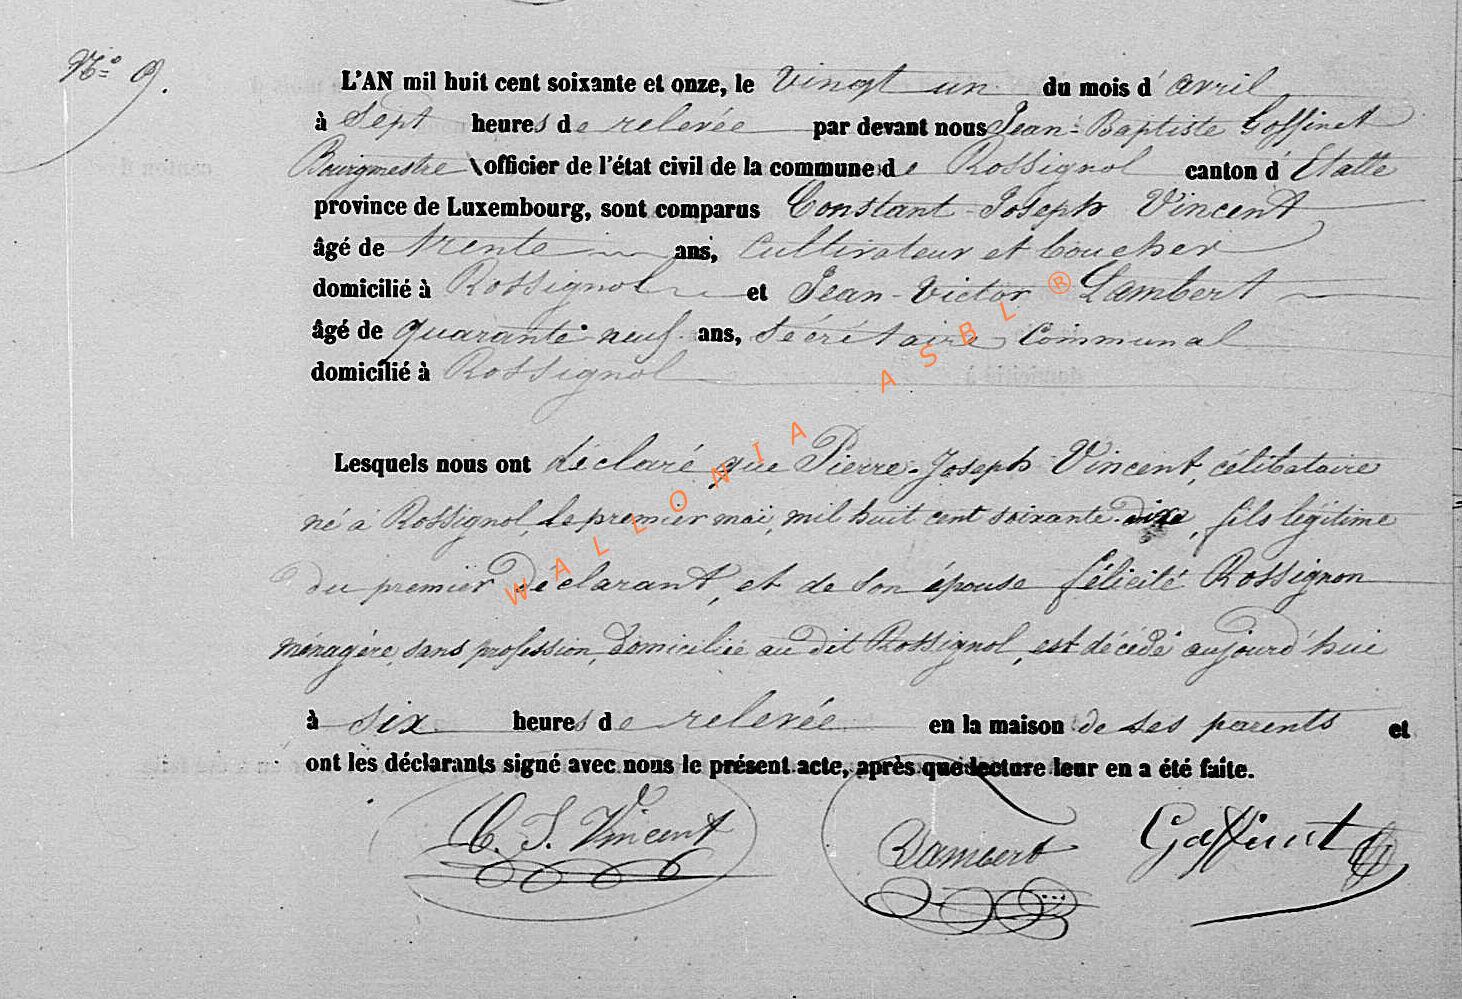 N° 9.
L'AN mil huit cent soixante et onze, le vingt un du mois d'avril
à sept heures de relevée par devant nous Jean-Baptiste Goffinet
Bourgmestre officier de l'état civil de la commune de Rossignol canton d'Etalle
province de Luxembourg, sont comparus Constant-Joseph Vincent
âgé de trente ans, cultivateur et boucher
domicilié à Rossignol et Jean-Victor Lambert
âgé de quarante neuf ans, Sécrétaire Communal
domicilié à Rossignol
Lesquels nous ont déclaré que Pierre-Joseph Vincent, célibataire
né à Rossignol, le premier mai, mil huit cent soixante dixe, fils légitime
du premier déclarant, et de son épouse félicité Rossignon
ménagère, sans profession, domiciliée au dit Rossignol, est décédé aujourd'hui
à six heures de relevée en la maison de ses parents et
ont les déclarants signé avec nous le présent acte, après que lecture leur en a été faite.
C. J. Vincent Lambert Goffinet
WALLONIA ASBL ®